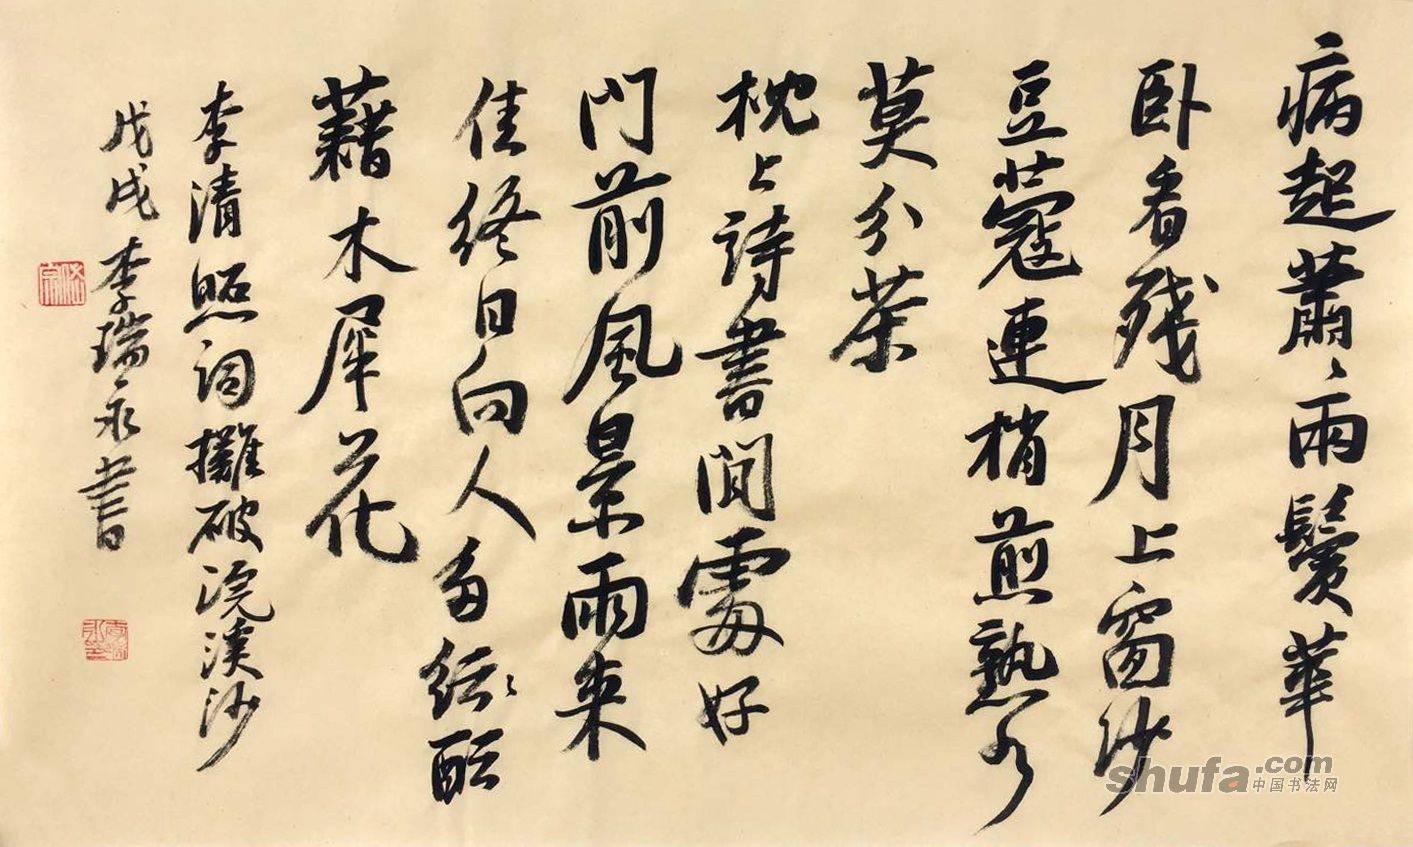 病起蕭〻兩鬢華
卧看残月上窗紗
豆蔻連梢煎熟水
莫分茶
枕上詩書閒處好
門前風景雨來
佳終日向人多醖
藉木犀花
李清照詞攤破浣溪沙
戊戌李瑞永書
shufa.com
中国书法网